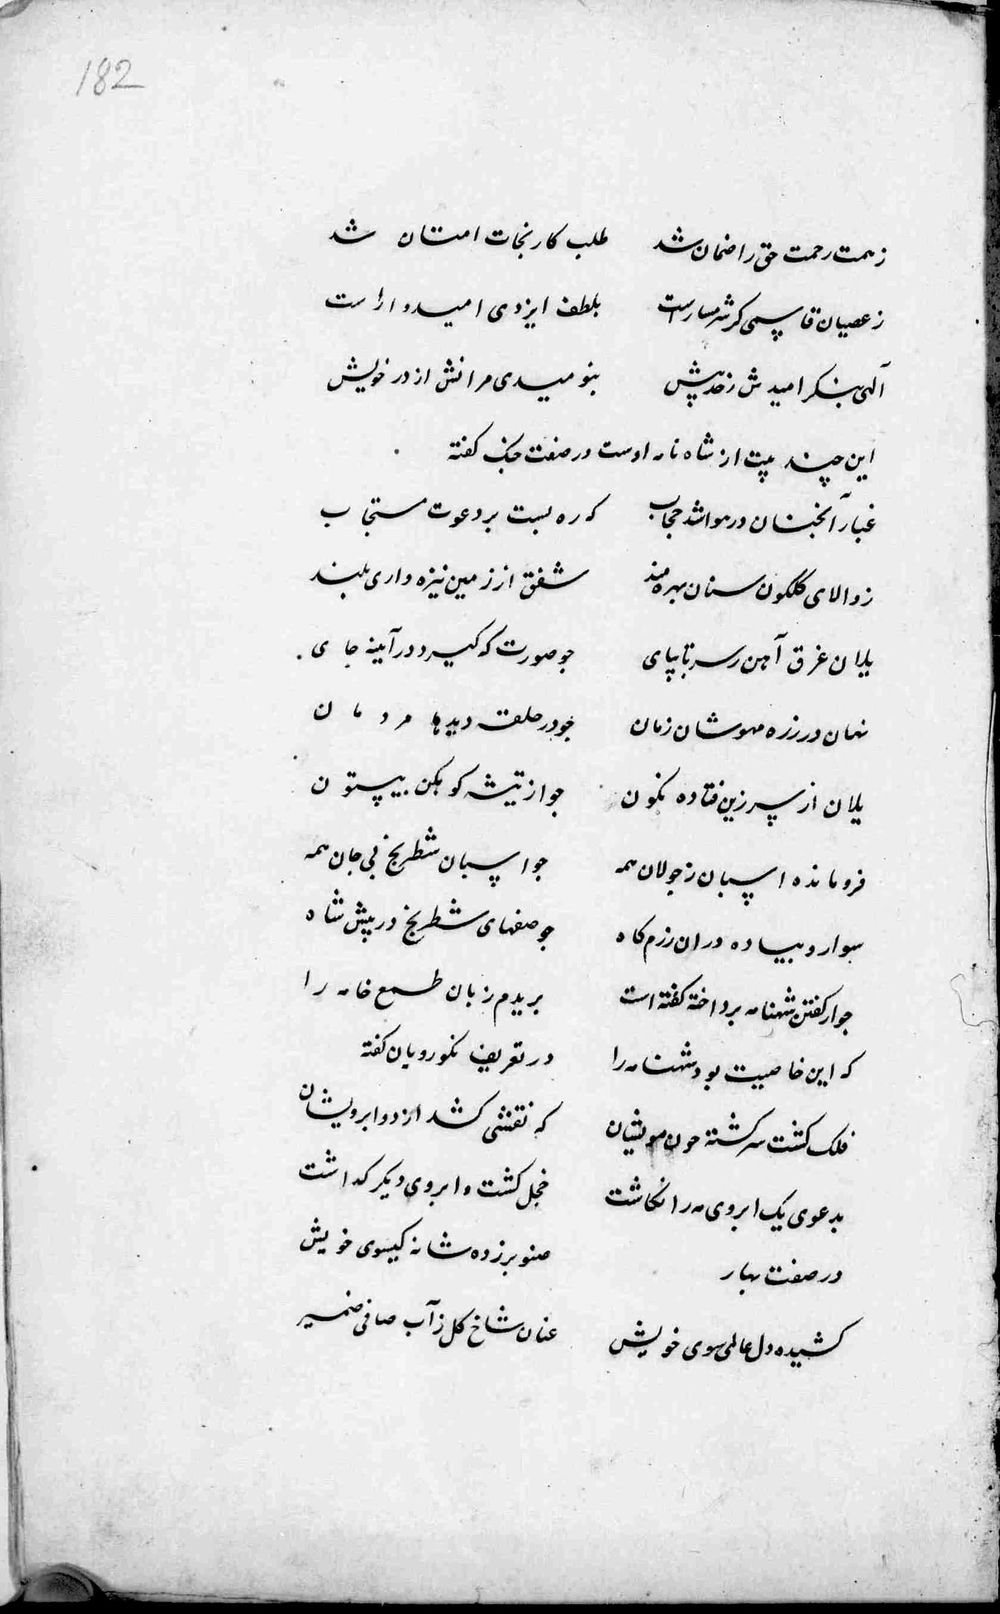 182
زهمت رحمت حق را ضمان شد طلب کار نجات امتان شد
ز عصیان قاسمی کر شرمسار است بلطف ایزدی امیدوار است
آلهی بنکر امیدش ز حد پیش بنومیدی مرانش از در خویش
این چند بیت از شاه نامه اوست در صفت جنک کفته
غبار آنخنان در هوا شد حجاب که ره بست بر دعوت مستجاب
ز والای کلکون سنان بهره مند شفق از زمین نیزه واری بلند
یلان غرق آهن ز سر تا بپای جو صورت که کیرد در آینه جای
نهان در زره مهوشان زمان جو در حلقه دیدها مردمان
یلان از سر زین فتاده نکون جو از تیشه کوهکن بیستون
فرومانده اسپان ز جولان همه جو اسپان شطرنج بی جان همه
سوار و پیاده دران رزم کاه جو صفهای شطرنج در پیش شاه
جو از کفتن شهنامه برداخته کفته است بریدم زبان طمع خامه را
که این خاصیت بود شهنامه را در تعریف نکورویان کفته
فلک کشت سرکشته چون مویشان که نقشی کشد از دو ابرویشان
بدعوی یک ابروی مه را نکاشت خجل کشت و ابروی دیکر کذاشت
در صفت بهار صنوبر زده شانه کیسوی خویش
کشیده دل عالمی سوی خویش عنان شاخ کل ز آب صافی ضمیر